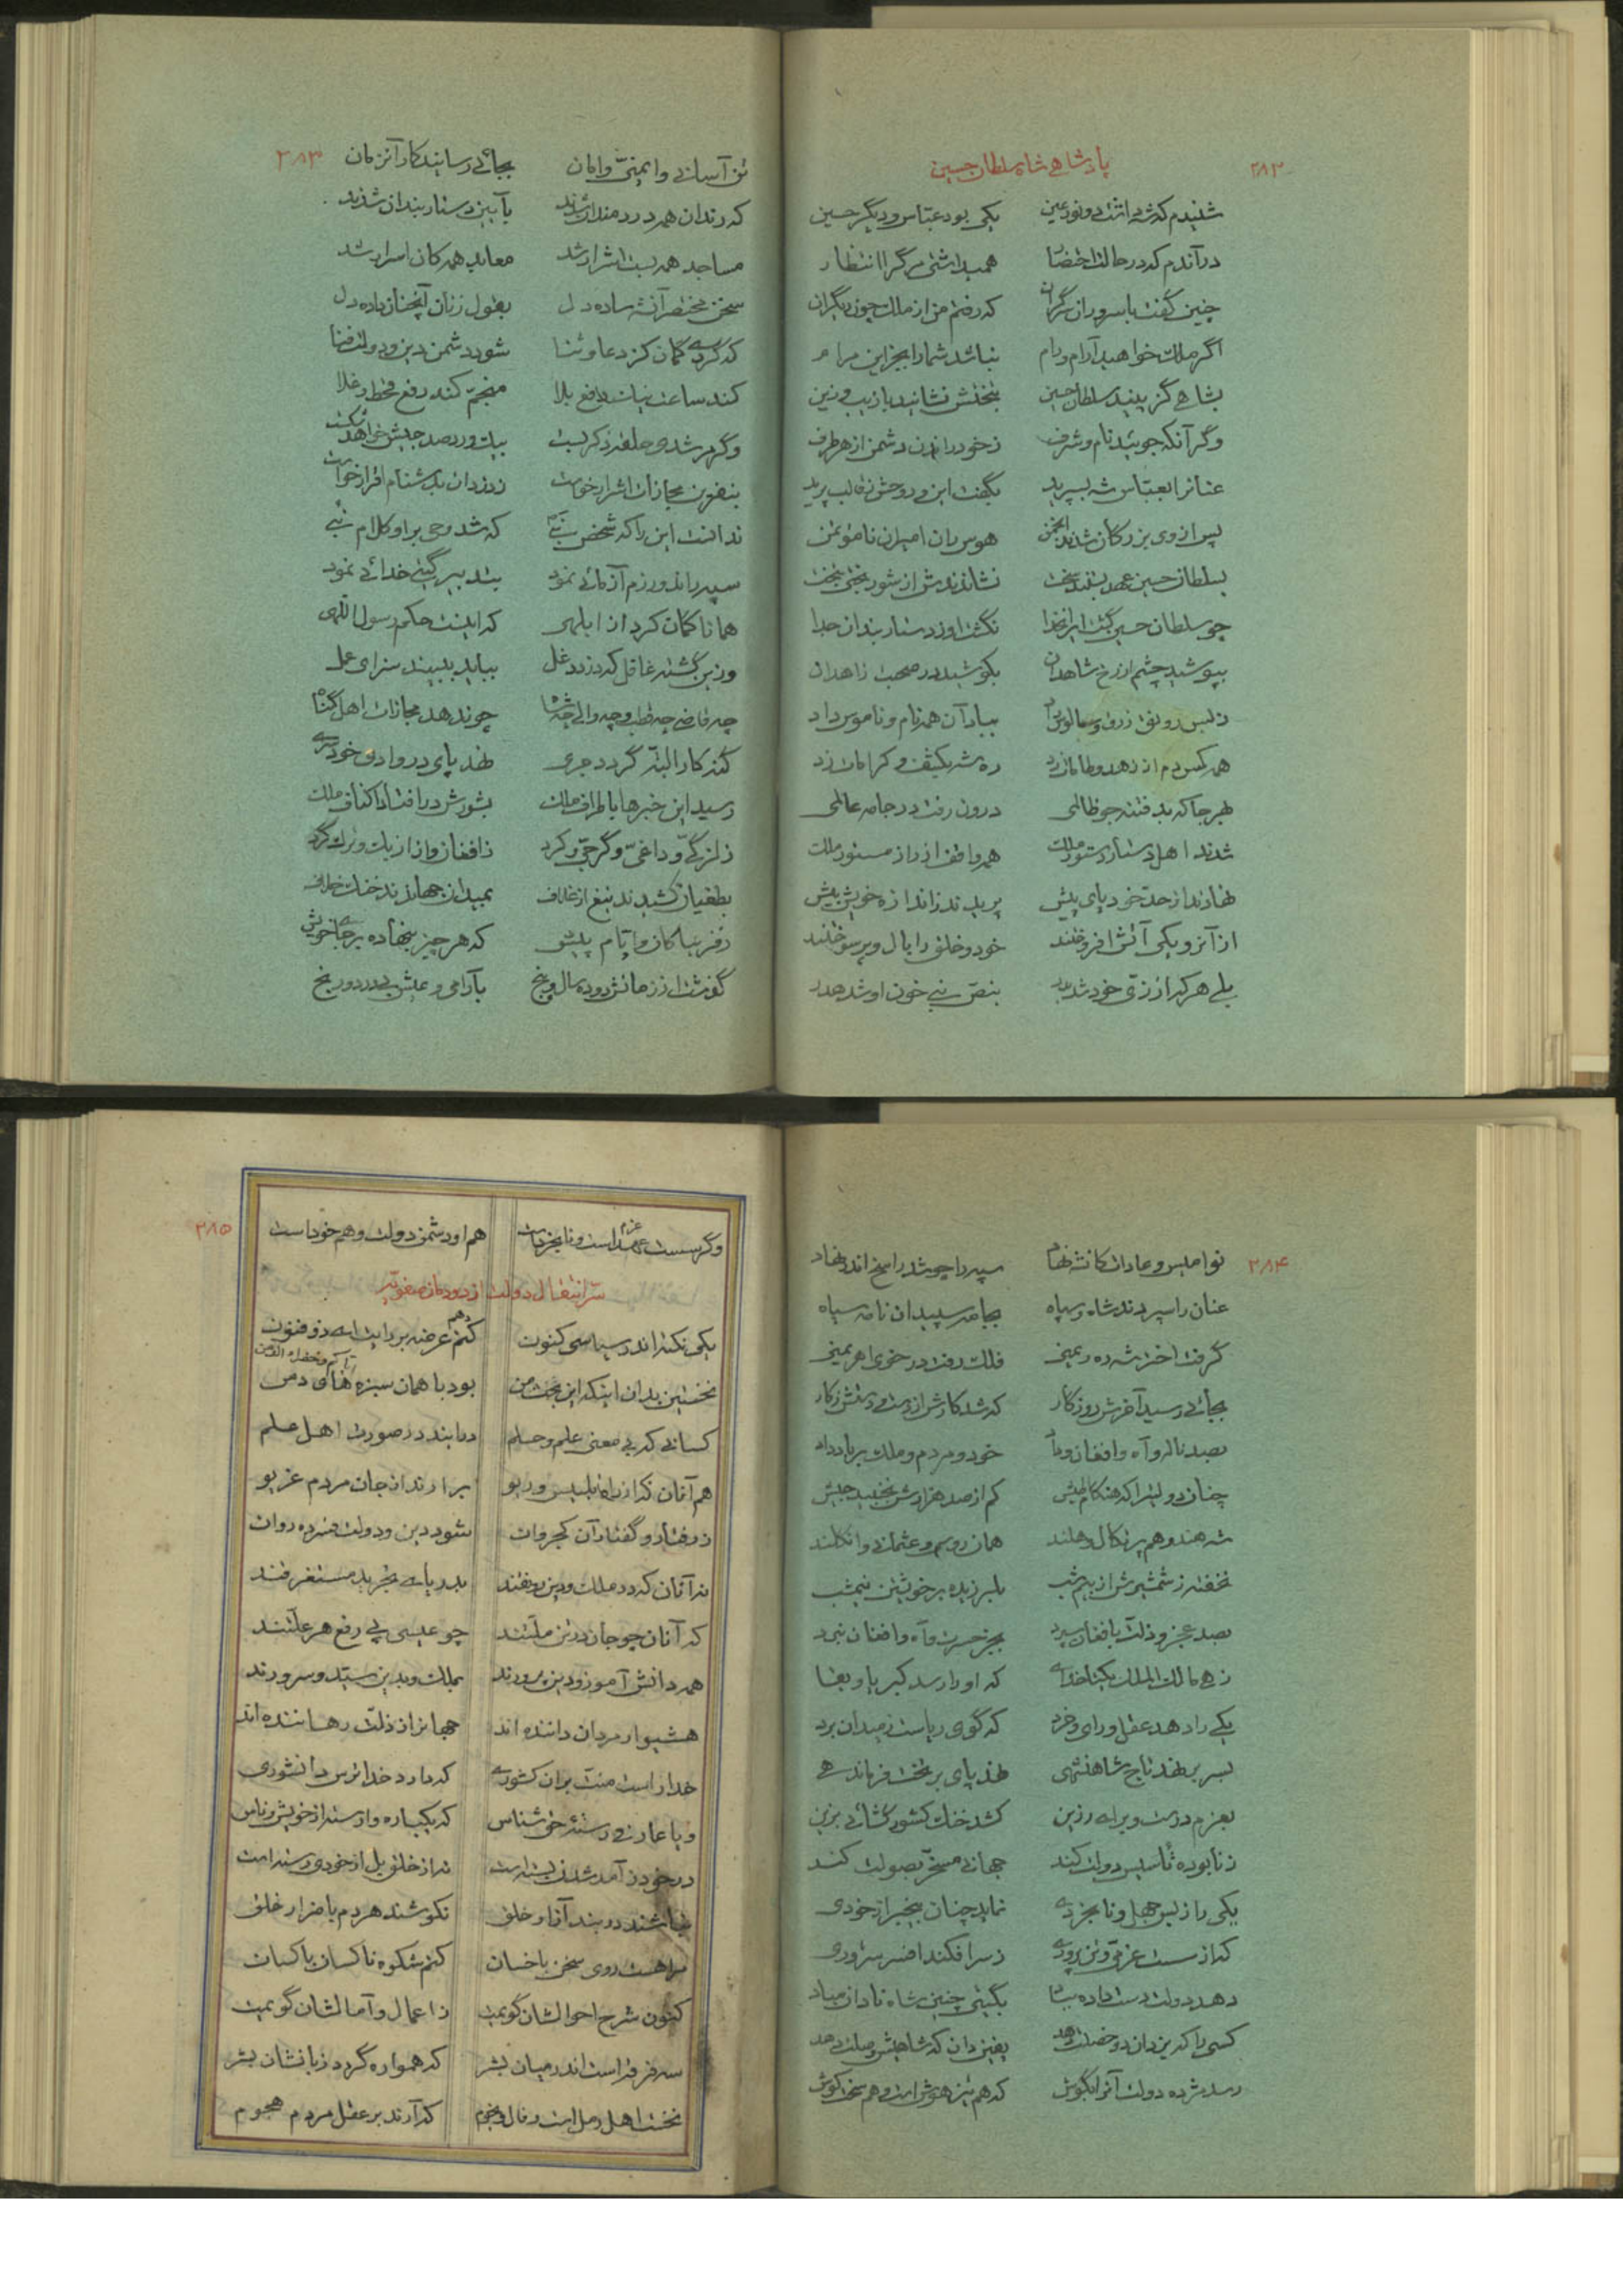 پادشاهی شاه سلطان حسین ۲۸۲
شنیدم که شه داشت دو نور عین یکی بود عباس و دیگر حسین
در آندم که در حالت احتضار همیداشتی مرگ را انتظار
چنین گفت با سروران گران که رفتم من از ملک چون دیگران
اگر ملک خواهید آرام و رام نباشد شما را بجز این مرام
بشاهی گزینید سلطان حسین بتختش نشانید با زیب و زین
وگر آنکه جوئید نام و شرف ز خود راندن دشمن از هر طرف
عنانرا بعباس شه بسپرید بگفت این و روحش ز قالب پرید
پس از وی بزرگان شدند انجمن هوس ران امیران نامؤتمن
بسلطان حسین عهد بستند سخت نشاندندش از شور بختی بتخت
چو سلطان حسین گشت ایران خدا نگشت او ز دستار بندان جدا
بپوشید چشم از رخ شاهدان بکوشید در صحبت زاهدان
ز بس رونق زرق و سالوس داد بباد آن همه نام و ناموس داد
همه کس دم از زهد و طامات زد ره شه بکشف و کرامات زد
بهر جا که بد فتنه جو ظالمی درون رفت در جامه عالمی
شدند اهل دستار دستور ملک همه واقف از راز مستور ملک
نهادند از حد خود پای پیش پریدند ز اندازه خویش بیش
از آنرو یکی آتش افروختند خود و خلق را بال و پر سوختند
بلی هر که از زی خود شد بدر بنص نبی خون او شد هدر
۲۸۳ تن آسانی و ایمنی و امان بجائی رسانید کار آنزمان
که رندان همه دردمندان شدند بآیین دستار بندان شدند
مساجد همه بست اشرار شد معابد همه کان اسرار شد
سخن مختصر آن شه ساده دل بقول زنان آنچنان داده دل
که کردی گمان کز دعا و ثنا شود دشمن دین و دولت فنا
کند ساعت نیک دفع بلا منجم کند رفع قحط و غلا
وگر مرشدی حلقه ذکر بست بیک ورد صد جیش خواهد شکست
بنفرین مجازات اشرار خواست ز دزدان بدشنام اقرار خواست
ندانست این را که شخص نبی که شد وحی بر او کلام نبی
سپه راند و رزم آزمائی نمود بتدبیر گیتی خدائی نمود
همانا گمان کرد از ابلهی که اینست حکم رسول اللهی
وزین گشته غافل که دزد دغل بباید ببیند سزای عمل
چه قاضی چه قطب و چه والی چه شاه چو ندهد مجازات اهل گناه
گنه کار البته گردد جری نهد پای در وادی خودسری
رسید این خبرها باطراف ملک بشورش در افتاد اکناف ملک
ز لزگی و داغی و گرجی و کرد ز افغان و از ازبک و ترک گرد
بطغیان کشیدند تیغ از غلاف بمیدان جهاندند خنگ خلاف
ز فر نیاکان و ایام پیش که هر چیز بنهاده بر جای خویش
گذشت از زمانش دو ده سال و پنج بآرامی و عیش بی درد و رنج
۲۸۴ نوامیس و عادات کانشه نهاد سپه را چو شد راسخ اندر نهاد
عنان را سپردند شاه و سپاه بجامه سپیدان نامه سیاه
گرفت اختر شه ره ریمنی فلک رفت در خوی اهریمنی
بجائی رسید آخرش روزگار که شد کارش از دست و دستش ز کار
بصد ناله و آه و افغان و داد خود و مردم و ملک بر باد داد
چنان دولتیرا که هنگام طیش کم از صد هزارش نجنبید جیش
شه هند و هم پرتکال و هلند همان روس و عثمانی و انگلند
نخفته ز شمشیرش از بیم شب بلرزیده بر خویشتن نیمشب
بصد عجز و ذلت بافغان سپرد بجز حسرت و آه و افغان نبرد
زهی مالک الملک یکتا خدای که او را رسد کبریا و بقا
یکی را دهد عقل و رای و خرد که گوی ریاست ز میدان برد
بسر بر نهد تاج شاهنشهی نهد پای بر تخت فرماندهی
بعزم درست و برای رزین کشد خنگ کشور گشائی بزین
ز نابوده تأسیس دولت کند جهانی مسخر بصولت کند
یکی را ز بس جهل و نابخردی نماید چنان بیخبر از خودی
که از سست عزمی و تن پروری ز سر افکند افسر سروری
دهد دولت دست داده بباد بگیتی چنین شاه نادان مباد
کسی را که یزدان دو خصلت دهد یقین دان که شاهیش وصلت دهد
رسد مژده دولت آنرا بگوش که هم تیز هوش است و هم سخت کوش
۲۸۵ وگر سست عزم است و نابخرد است هم او دشمن دولت و هم خود است
سر انتقال دولت از دودمان صفویه
یکی نکته اندر سیاسی کنون کنم عرضه بر رایت ای ذو فنون
نخستین بدان اینکه این بحث من بود با همان سبزه های دمن
کسانی که بی معنی علم و حلم در آیند در صورت اهل علم
هم آنان که از راه تلبیس و ریو برارند از جان مردم غریو
ز رفتار و گفتار آن کجروان شود دین و دولت فسرده روان
نه آنان که در ملک و دین رونقند بدریای تجرید مستغرقند
که آنان چو جان در تن ملتند چو عیسی پی رفع هر علتند
همه دانش آموز و دین پرورند بملک و بدین سید و سرورند
هشیوار مردان داننده اند جهانرا ز ذلت رهاننده اند
خدا راست منت بران کشوری که دارد خدا ترس دانشوری
و یا عارفی رسته حق شناس که یکباره وارسته از خویش و ناس
در خود ز آمد شدن بسته است نه از خلق بل از خودی رسته است
نباشند در بند آزار خلق نکوشند هردم باضرار خلق
مرا هست روی سخن با خسان کنم شکوه ناکسان با کسان
کنون شرح احوالشان گویمت ز اعمال و آمالشان گویمت
سه فرقه است اندر میان بشر که همواره گردد زیانشان بشر
نخست اهل رمل است و فال و نجوم که آرند بر عقل مردم هجوم